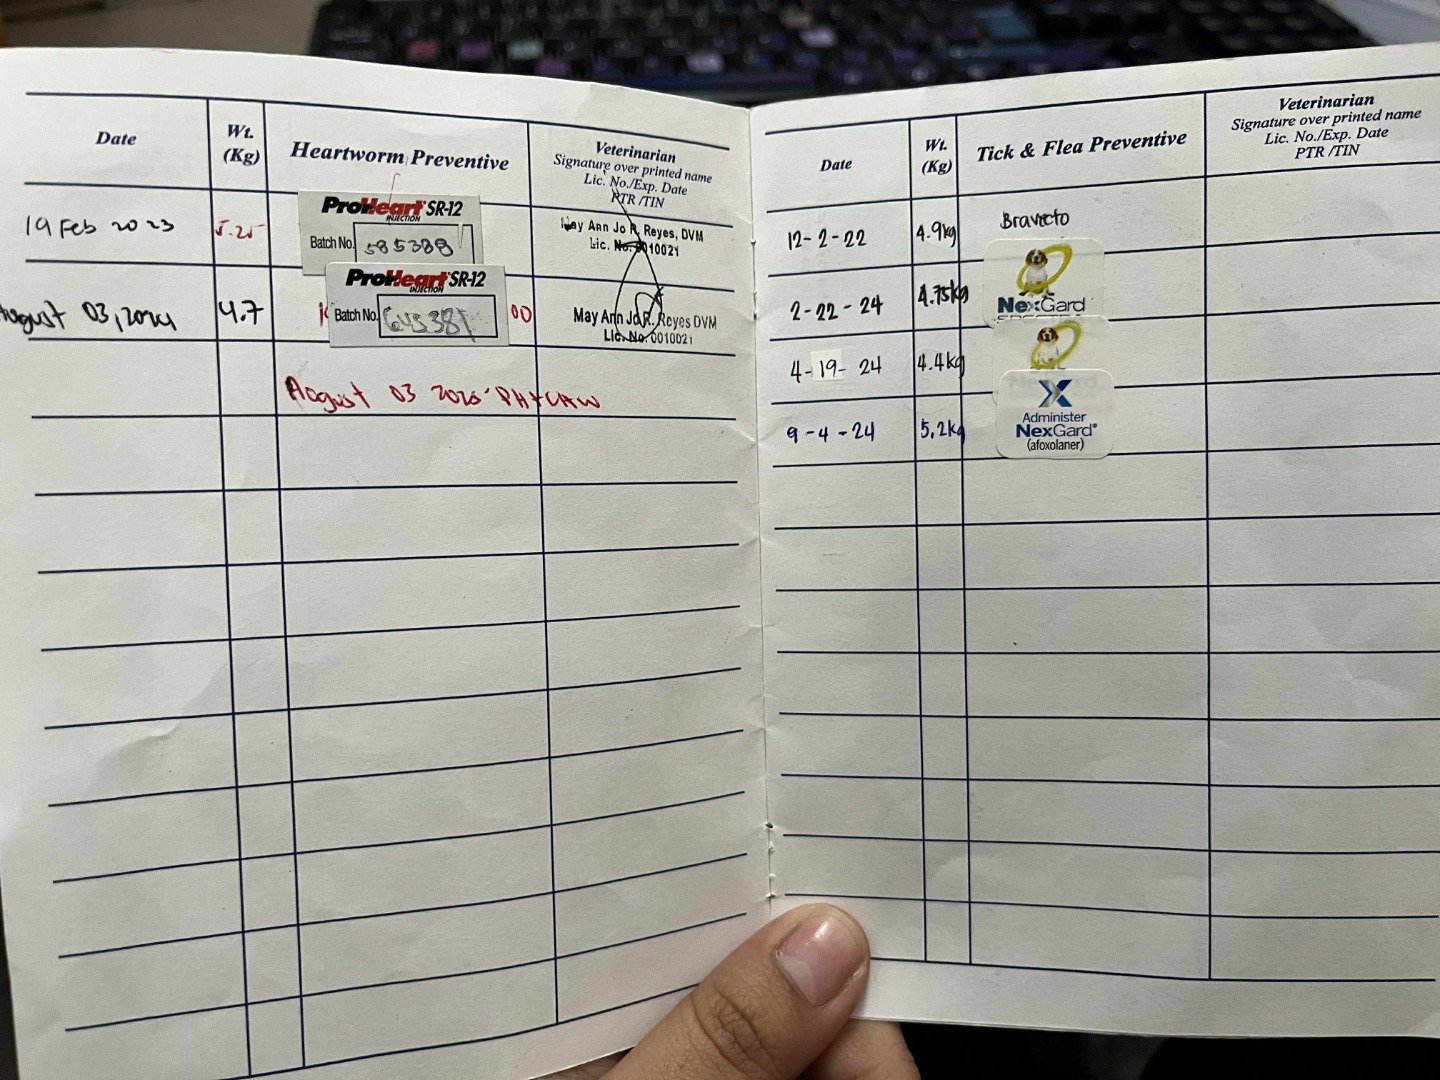 Date
Wt.
(Kg)
Heartworm Preventive
Veterinarian
Signature over printed name
Lic. No./Exp. Date
PTR /TIN
19 Feb 2023
5.25
ProHeart SR-12
INJECTION
Batch No.
585388
May Ann Jo R. Reyes, DVM
Lic. No. 0010021
August 03, 2024
4.7
ProHeart SR-12
INJECTION
Batch No.
645381
00
May Ann Jo R. Reyes DVM
Lic. No. 0010021
August 03 2025
Date
Wt.
(Kg)
Tick & Flea Preventive
Veterinarian
Signature over printed name
Lic. No./Exp. Date
PTR /TIN
12- 2-22
4.9kg
Bravecto
2-22-24
4.75kg
NexGard
4-19- 24
4.4kg
9-4-24
5.2kg
Administer
NexGard®
(afoxolaner)